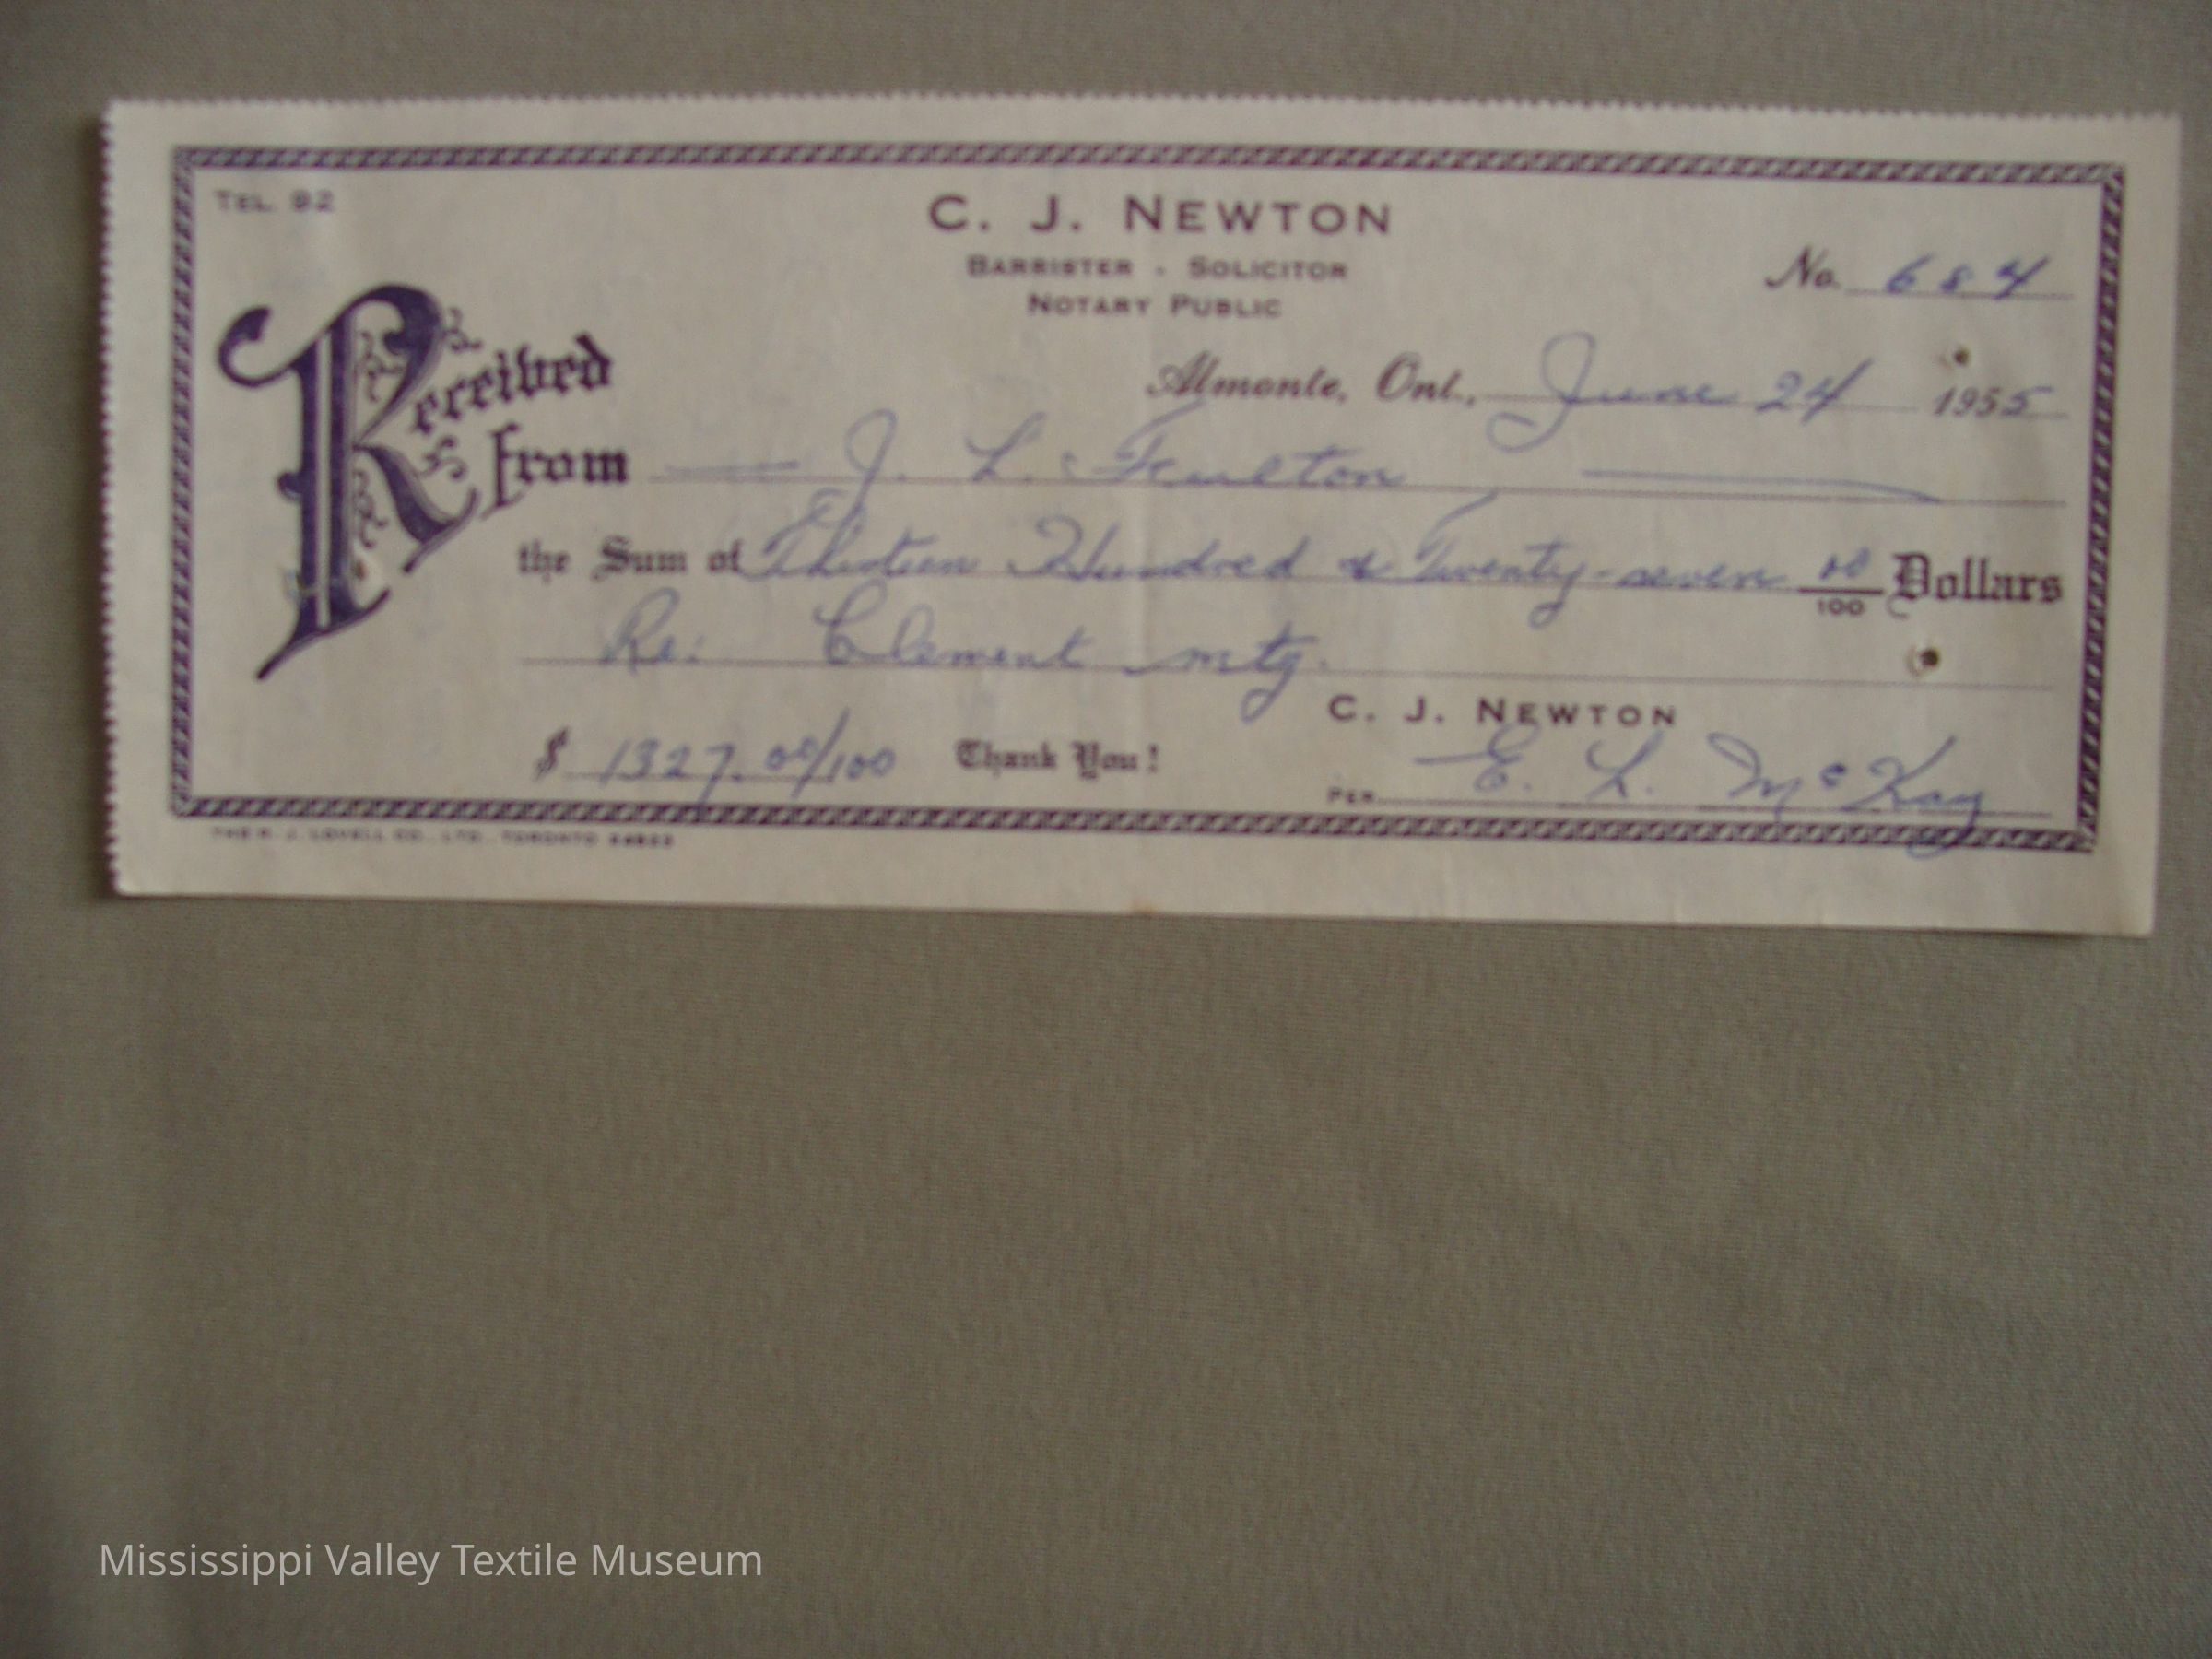 TEL. 92
C. J. NEWTON
BARRISTER - SOLICITOR
NOTARY PUBLIC
No. 684
Almonte, Ont., June 24 1955
Received from J. L. Fulton
the Sum of Thirteen Hundred & Twenty-seven 00/100 Dollars
Re: Clement mtg.
C. J. NEWTON
$ 1327.00/100 Thank You!
PER E. L. McKay
THE R. J. LOVELL CO., LTD., TORONTO
Mississippi Valley Textile Museum